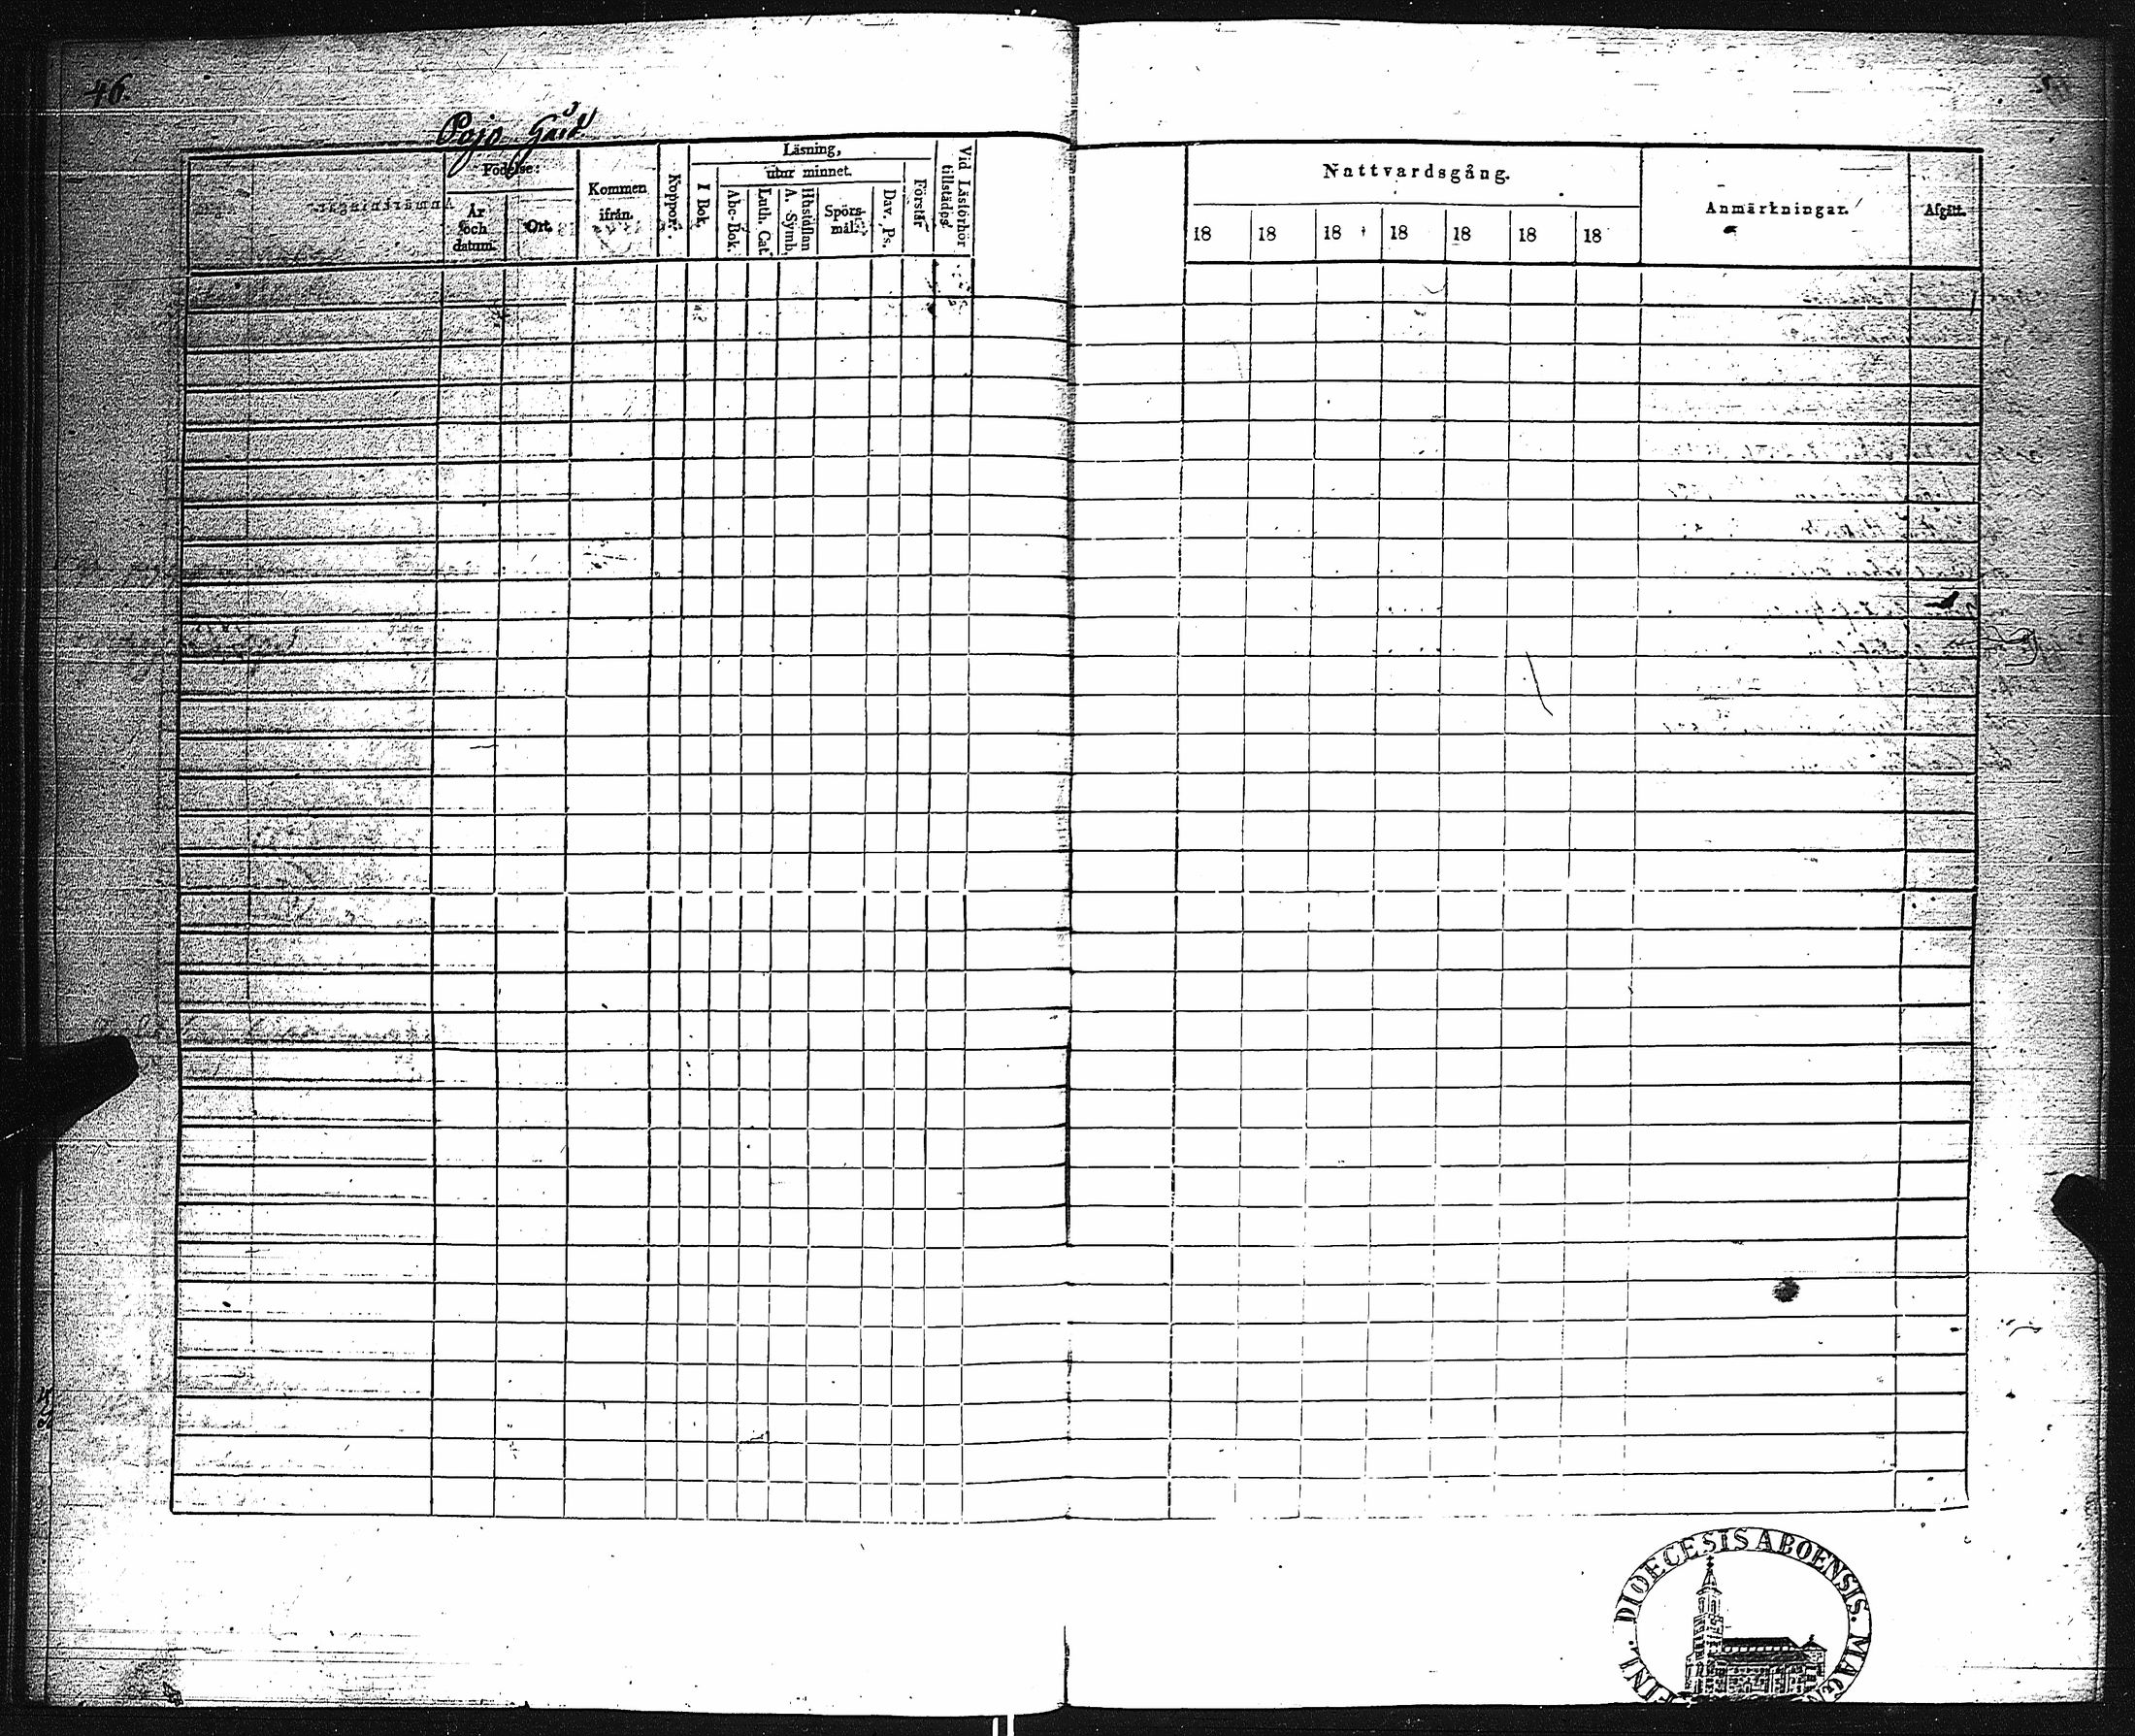 46.
Pojo Gård
Födelse:
År och datum.
Ort.
Kommen ifrån.
Koppor.
Läsning,
I Bok.
utur minnet.
Abc-Bok.
Luth. Cat.
A. Symb.
Spörs-mål.
Dav. Ps.
Förstår
Vid Läsförhör tillstädes.
Nattvardsgång.
18 18 18 18 18 18 18
Anmärkningar.
Afgått.
DIOECESIS ABOENSIS. MAG